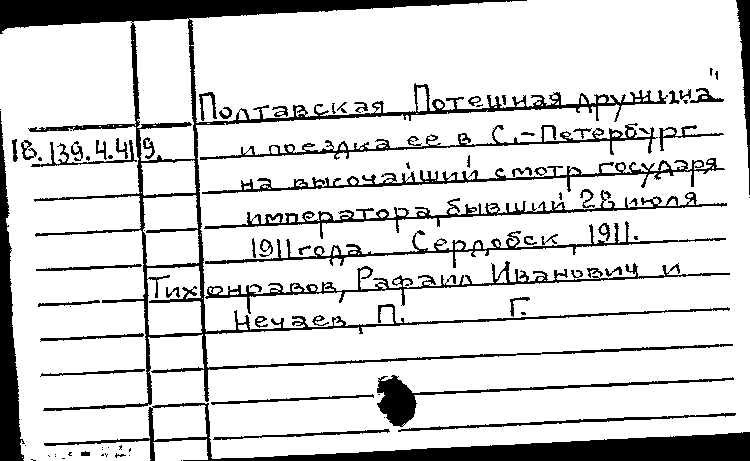 Полтавская „Потешная дружина"
18.139.4.419. и поездка ее в С.-Петербург
на высочайший смотр государя
императора, бывший 28 июля
1911 года. Сердобск, 1911.
Тихонравов, Рафаил Иванович и
Нечаев, П. Г.